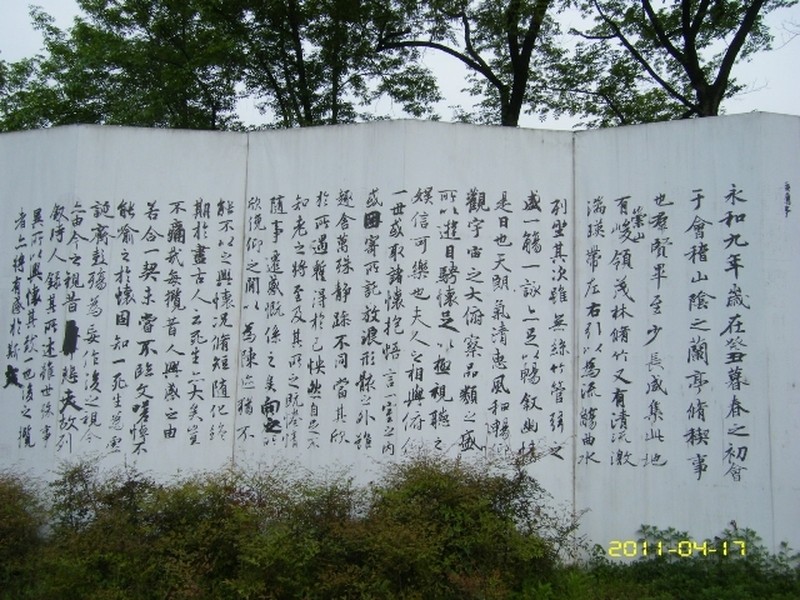 永和九年歲在癸丑暮春之初會
于會稽山陰之蘭亭脩稧事
也羣賢畢至少長咸集此地
有崇山峻領茂林脩竹又有清流激
湍暎帶左右引以為流觴曲水
列坐其次雖無絲竹管弦之
盛一觴一詠亦足以暢敘幽情
是日也天朗氣清惠風和暢仰
觀宇宙之大俯察品類之盛
所以遊目騁懷足以極視聽之
娛信可樂也夫人之相與俯仰
一世或取諸懷抱悟言一室之內
或因寄所託放浪形骸之外雖
趣舍萬殊靜躁不同當其欣
於所遇暫得於己怏然自足不
知老之將至及其所之既惓情
隨事遷感慨係之矣向之所
欣俛仰之間以為陳迹猶不
能不以之興懷況脩短隨化終
期於盡古人云死生亦大矣豈
不痛哉每攬昔人興感之由
若合一契未嘗不臨文嗟悼不
能喻之於懷固知一死生為虛
誕齊彭殤為妄作後之視今
亦由今之視昔悲夫故列
敘時人錄其所述雖世殊事
異所以興懷其致一也後之攬
者亦將有感於斯文
2011-04-17